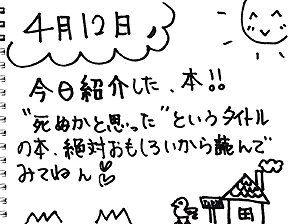 4月12日
今日紹介した、本!!
"死ぬかと思った"というタイトル
の本、絶対おもしろいから読んで
みてねん♡